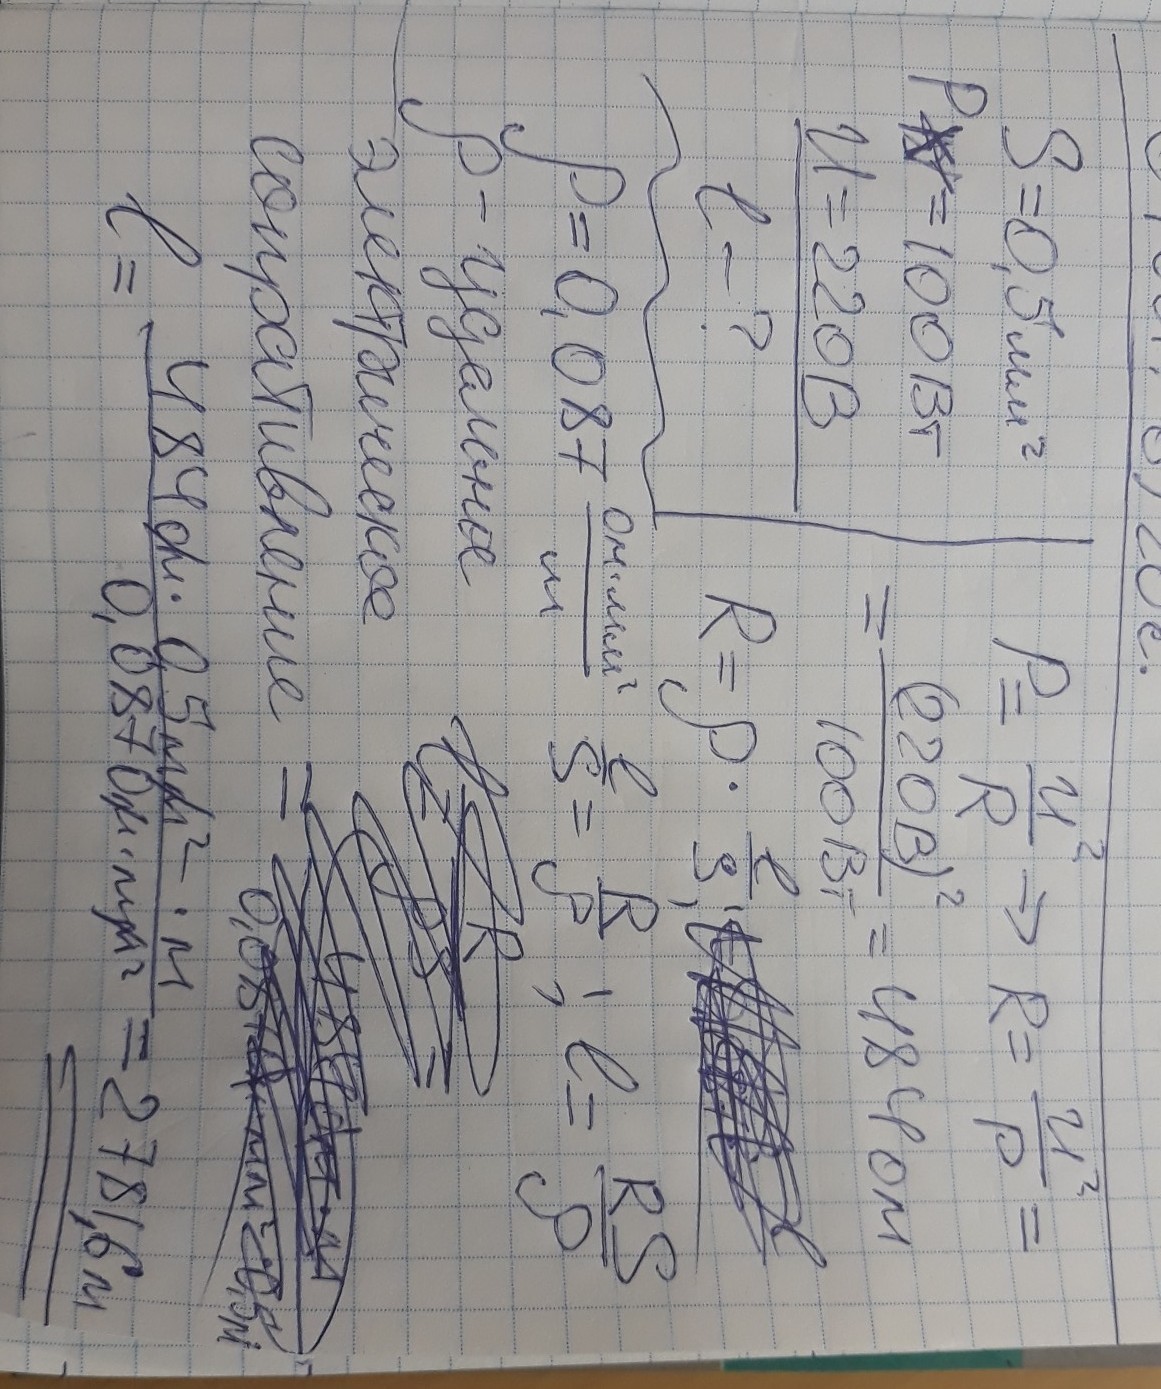 S = 0,5 мм²
P = 100 Вт
U = 220 В
l - ?
P = U²/R → R = U²/P =
= (220 В)²/100 Вт = 484 Ом
R = ρ · l/S ;
ρ = 0,087 Ом·мм²/м
l/S = R/ρ ; l = RS/ρ
ρ - удельное
электрическое
сопротивление
l = 484 Ом · 0,5 мм² · м/0,087 Ом·мм² = 2781,6 м